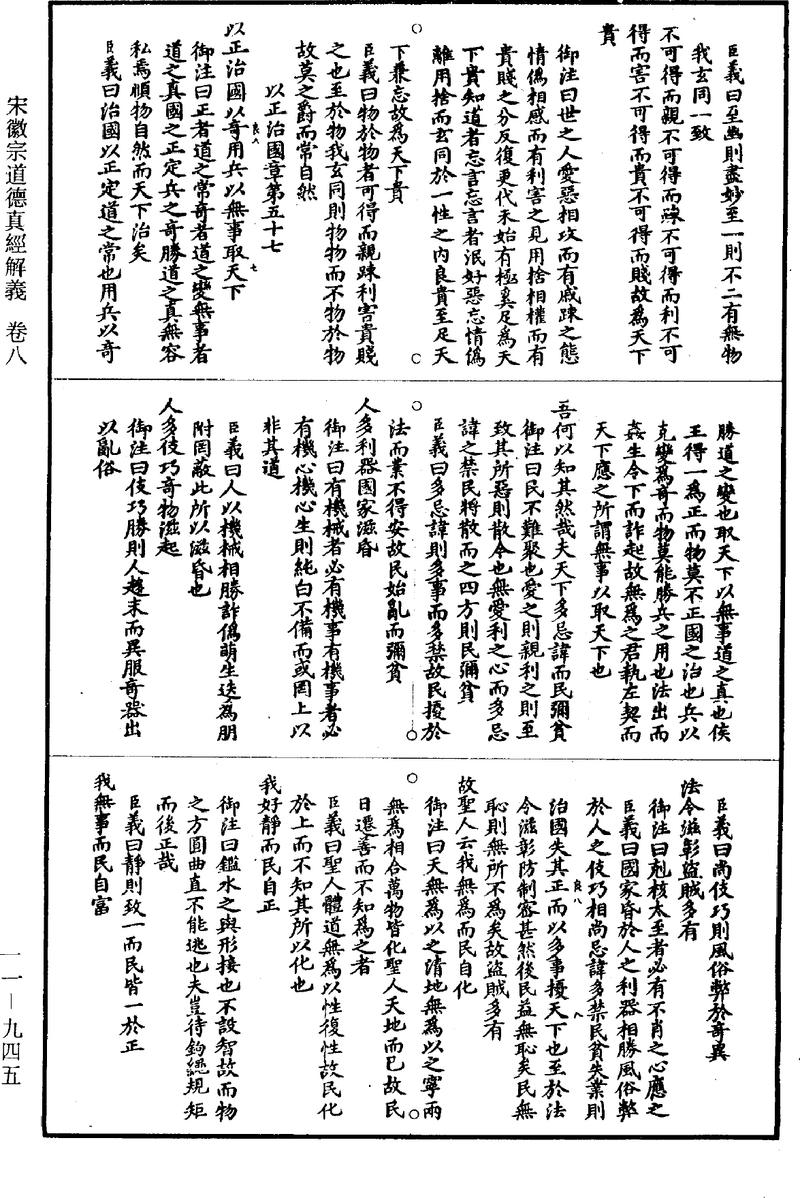 宋徽宗道德真經解義　卷八
一一—九四五
臣義曰至幽則盡妙至一則不二有無物
我玄同一致
不可得而親不可得而疎不可得而利不可
得而害不可得而貴不可得而賤故為天下
貴
御注曰世之人愛惡相攻而有戚疎之態
情僞相感而有利害之見用捨相權而有
貴賤之分反復更代未始有極奚足為天
下貴知道者忘言忘言者泯好惡忘情僞
離用捨而玄同於一性之內良貴至足天
下兼忘故為天下貴
臣義曰物於物者可得而親踈利害貴賤
之也至於物我玄同則物物而不物於物
故莫之爵而常自然
以正治國章第五十七
良八
七
以正治國以奇用兵以無事取天下
御注曰正者道之常奇者道之變無事者
道之真國之正定兵之奇勝道之真無容
私焉順物自然而天下治矣
臣義曰治國以正定道之常也用兵以奇
勝道之變也取天下以無事道之真也侯
王得一為正而物莫不正國之治也兵以
克變為奇而物莫能勝兵之用也法出而
姦生令下而詐起故無為之君執左契而
天下應之所謂無事以取天下也
吾何以知其然哉夫天下多忌諱而民彌貧
御注曰民不難聚也愛之則親利之則至
致其所惡則散令也無愛利之心而多忌
諱之禁民將散而之四方則民彌貧
臣義曰多忌諱則多事而多禁故民擾於
法而業不得安故民始亂而彌貧
人多利器國家滋昏
御注曰有機械者必有機事有機事者必
有機心機心生則純白不備而或罔上以
非其道
臣義曰人以機械相勝詐僞萌生迭為朋
附罔蔽此所以滋昏也
人多伎巧奇物滋起
御注曰伎巧勝則人趍末而異服奇器出
以亂俗
臣義曰尚伎巧則風俗弊於奇異
法令滋彰盜賊多有
御注曰剋核太至者必有不肖之心應之
臣義曰國家昏於人之利器相勝風俗弊
於人之伎巧相尚忌諱多禁民貧失業則
良八
八
治國失其正而以多事擾天下也至於法
令滋彰防制密甚然後民益無恥矣民無
恥則無所不為矣故盜賊多有
故聖人云我無為而民自化
御注曰天無為以之清地無為以之寧兩
無為相合萬物皆化聖人天地而已故民
日遷善而不知為之者
臣義曰聖人體道無為以性復性故民化
於上而不知其所以化也
我好靜而民自正
御注曰鑑水之與形接也不設智故而物
之方圓曲直不能逃也夫豈待鉤繩規矩
而後正哉
臣義曰靜則致一而民皆一於正
我無事而民自富